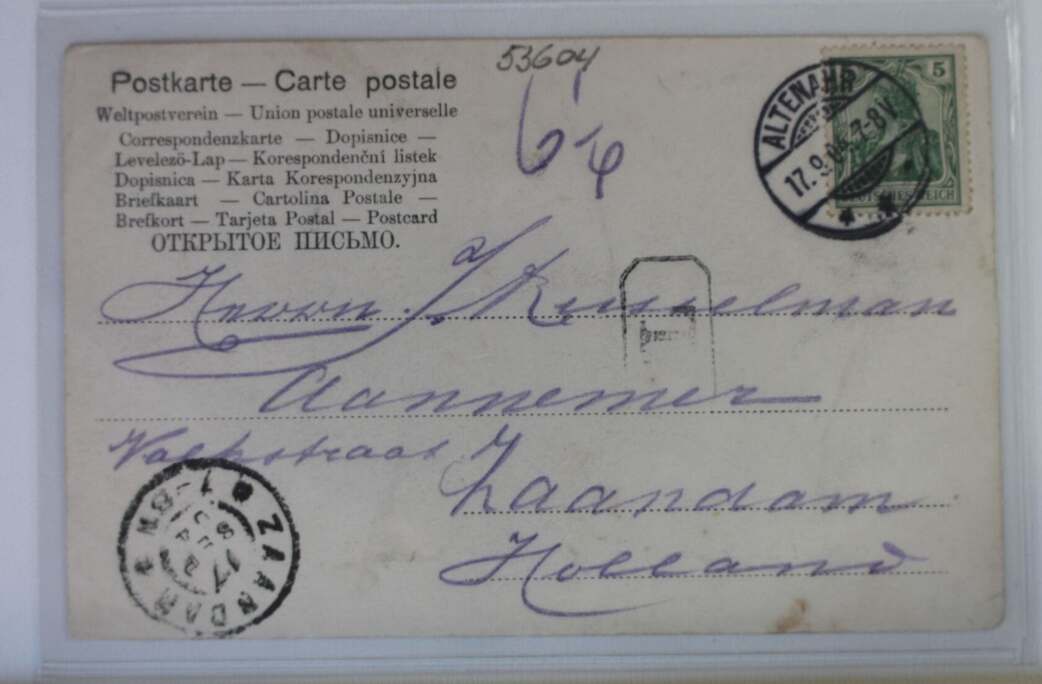 53604
Postkarte — Carte postale
Weltpostverein — Union postale universelle
Correspondenzkarte — Dopisnice —
Levelező-Lap — Korespondenční listek
Dopisnica — Karta Korespondenzyjna
Briefkaart — Cartolina Postale —
Brefkort — Tarjeta Postal — Postcard
ОТКРЫТОЕ ПИСЬМО.
5
DEUTSCHES REICH
ALTENAHR
17.9. 7-8V.
T
Herrn
Aannemer
Zaandam
Holland
ZAANDAM
17